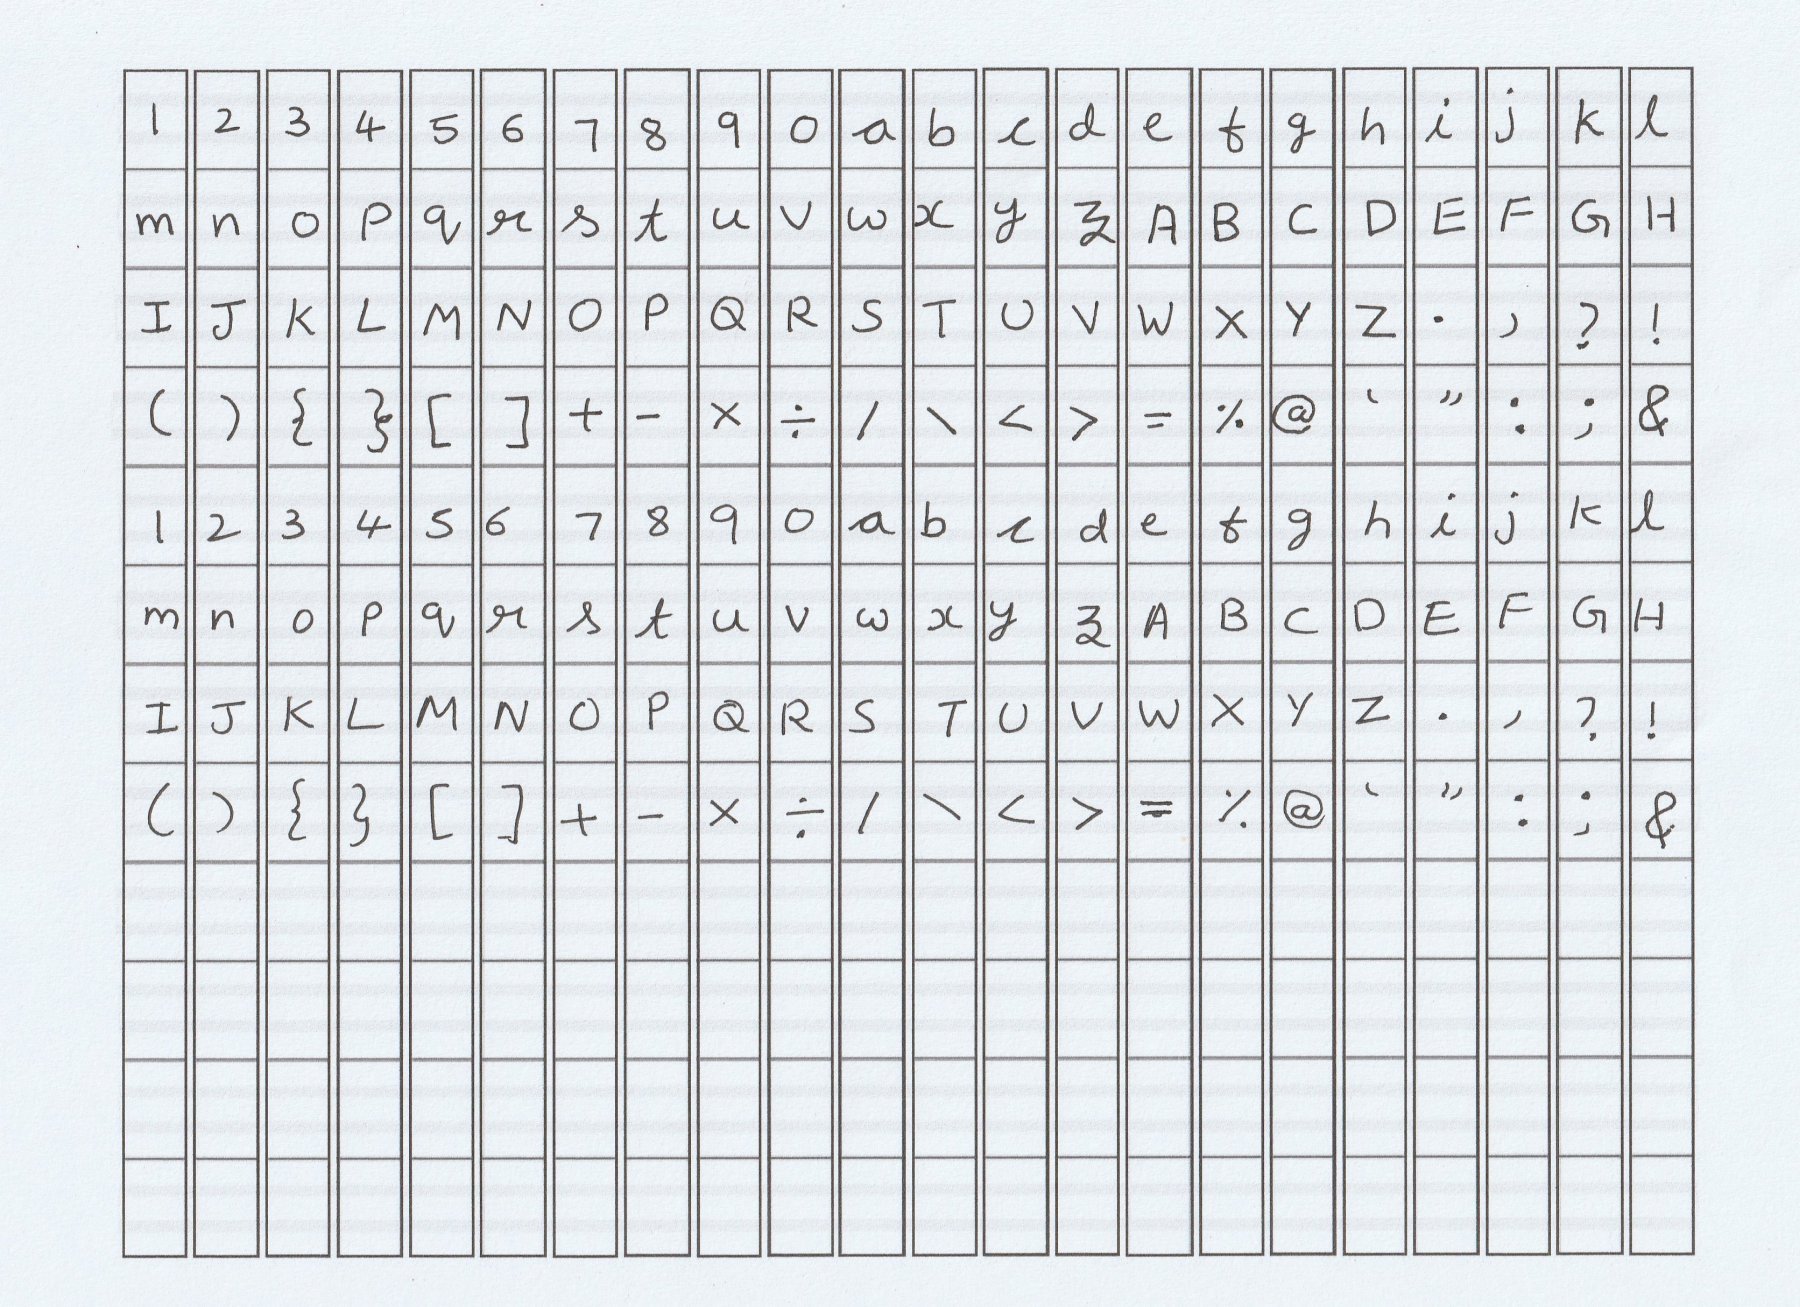 1 2 3 4 5 6 7 8 9 0 a b c d e f g h i j k l
m n o p q r s t u v w x y z A B C D E F G H
I J K L M N O P Q R S T U V W X Y Z . , ? !
( ) { } [ ] + - × ÷ / \ < > = % @ ‘ ” : ; &
1 2 3 4 5 6 7 8 9 0 a b c d e f g h i j k l
m n o p q r s t u v w x y z A B C D E F G H
I J K L M N O P Q R S T U V W X Y Z . , ? !
( ) { } [ ] + - × ÷ / \ < > = % @ ‘ ” : ; &